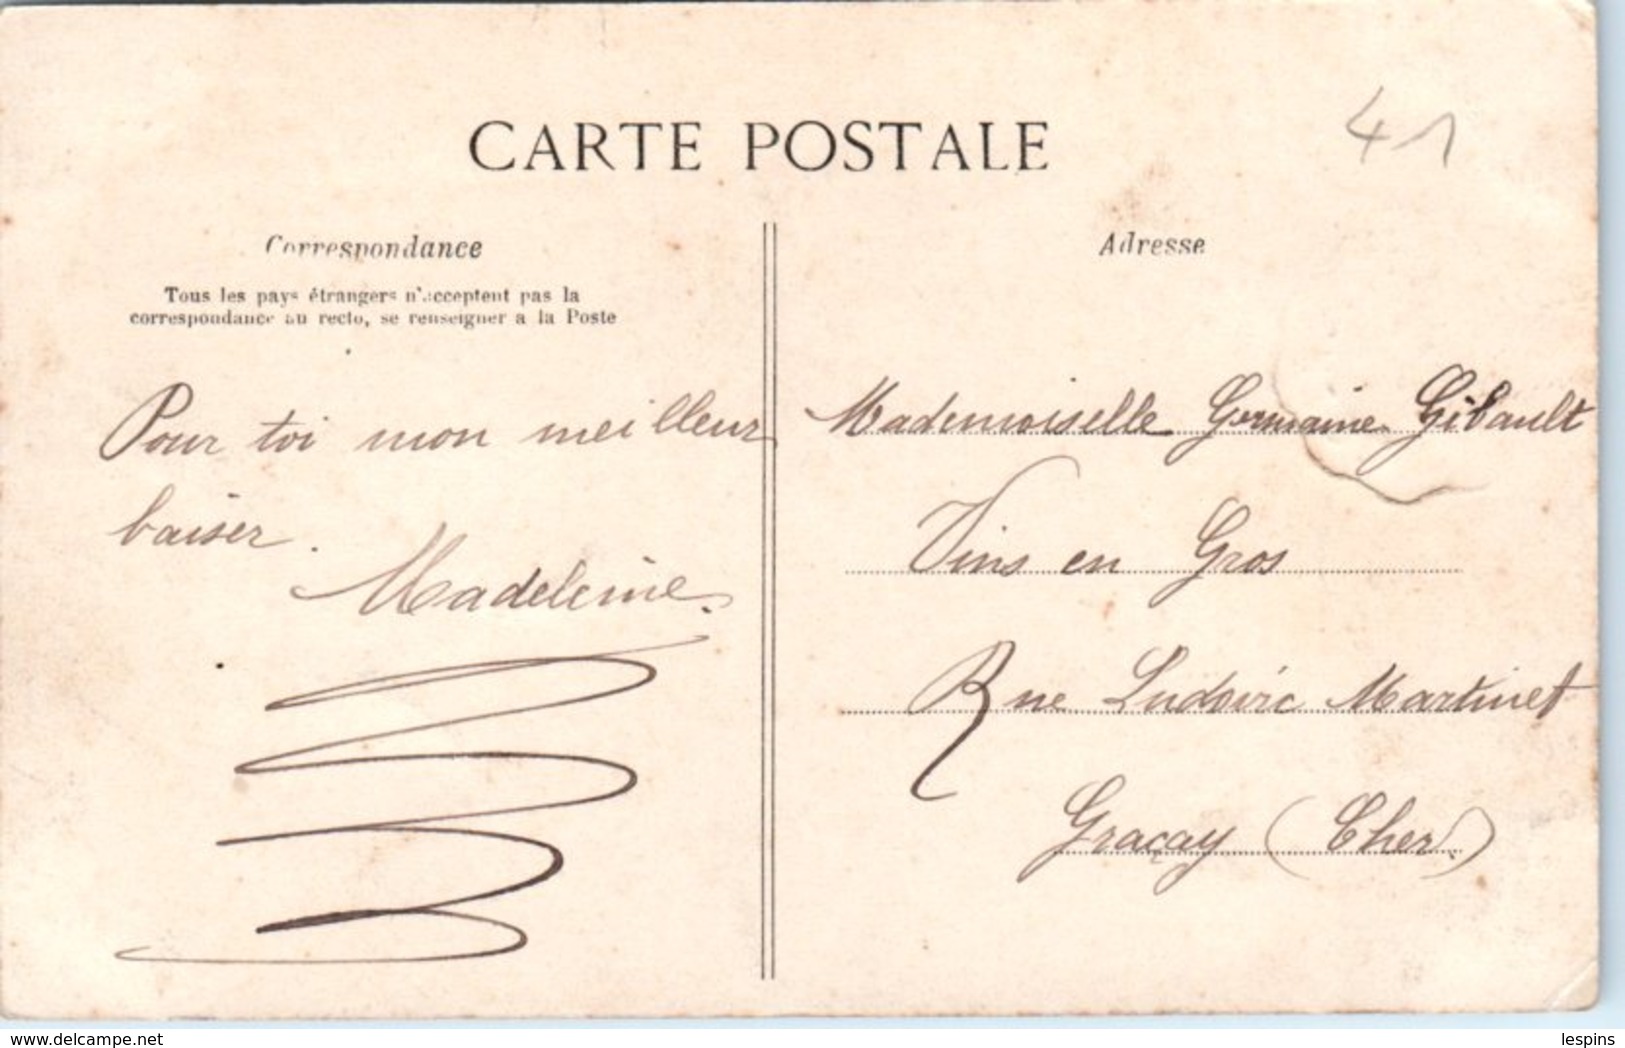 CARTE POSTALE
41
Correspondance
Tous les pays étrangers n'acceptent pas la
correspondance au recto, se renseigner a la Poste
Pour toi mon meilleur
baiser.
Madeleine.
Adresse
Mademoiselle Germaine Gibault
Vins en Gros
Rue Ludovic Martinet
Graçay (Cher)
www.delcampe.net
lespins